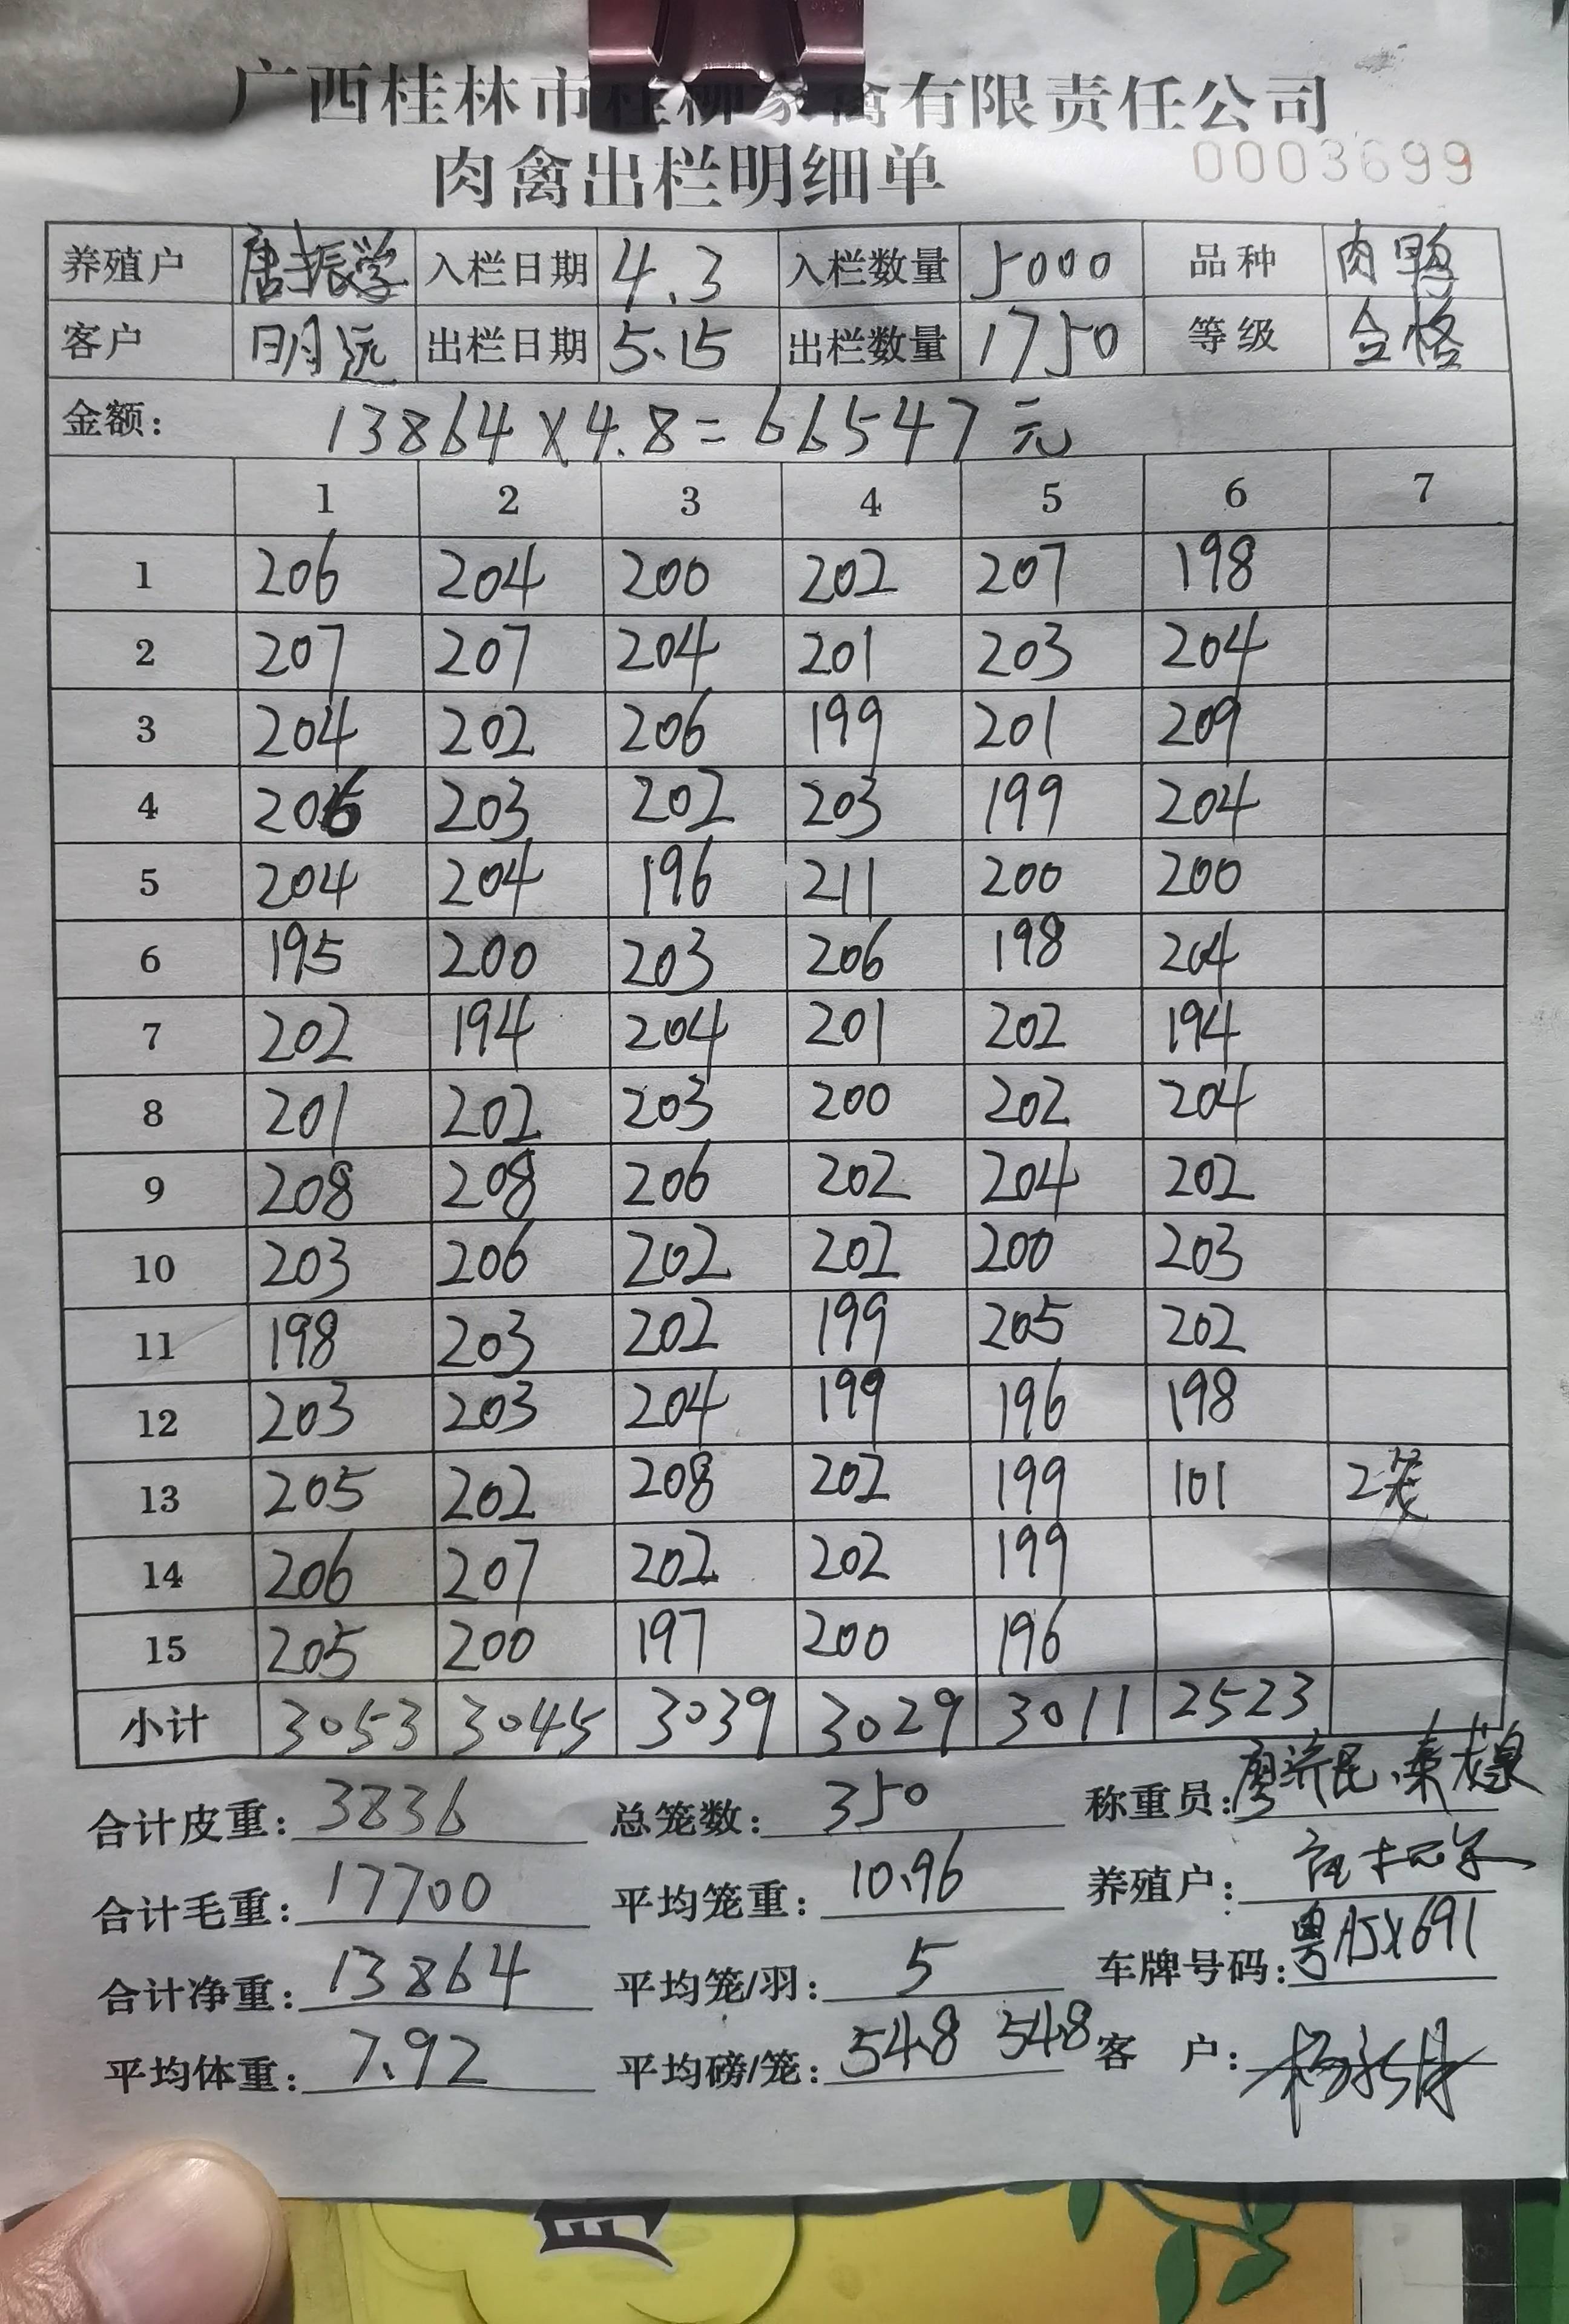 广西桂林市桂柳家禽有限责任公司
肉禽出栏明细单
0003699
养殖户 唐振学 入栏日期 4.3 入栏数量 5000 品种 肉鸭
客户 明远 出栏日期 5.15 出栏数量 1750 等级 合格
金额: 13864×4.8=66547元
1 2 3 4 5 6 7
1 206 204 200 202 207 198
2 207 207 204 201 203 204
3 204 202 206 199 201 209
4 206 203 202 203 199 204
5 204 204 196 211 200 200
6 195 200 203 206 198 204
7 202 194 204 201 202 194
8 201 202 203 200 202 204
9 208 208 206 202 204 202
10 203 206 202 202 200 203
11 198 203 202 199 205 202
12 203 203 204 199 196 198
13 205 202 208 202 199 101 2笼
14 206 207 202 202 199
15 205 200 197 200 196
小计 3053 3045 3039 3029 3011 2523
合计皮重: 3836 总笼数: 350 称重员: 廖济民、秦
合计毛重: 17700 平均笼重: 10.96 养殖户:
合计净重: 13864 平均笼/羽: 5 车牌号码: 粤AJX691
平均体重: 7.92 平均磅/笼: 548 548 客 户: